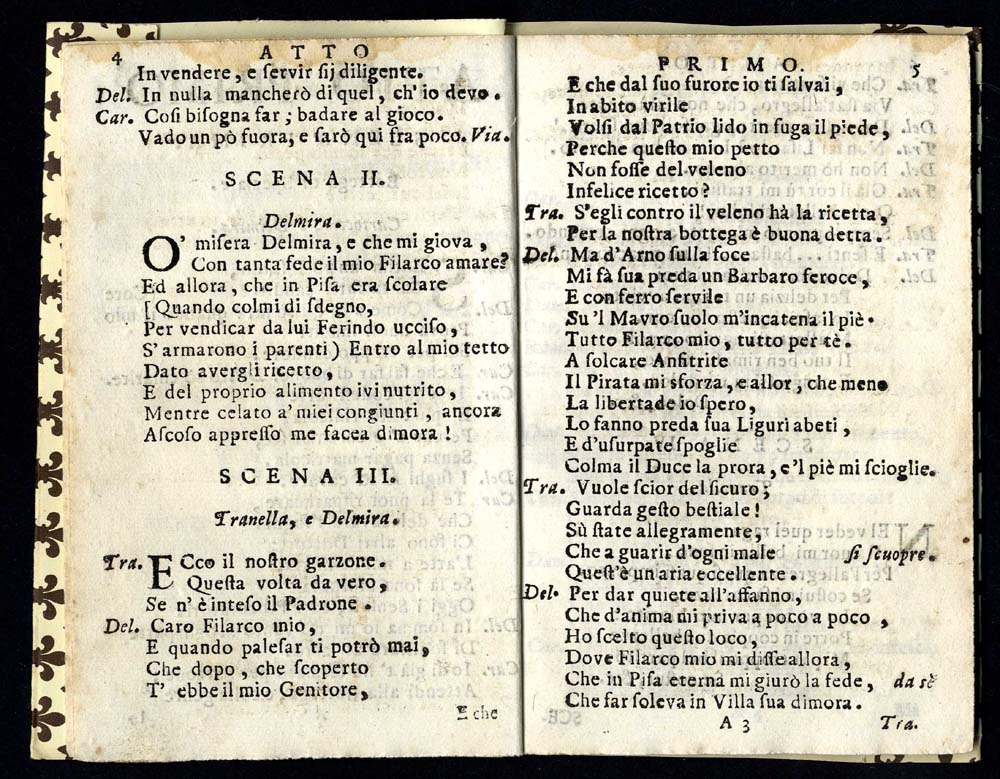 4 ATTO
In vendere, e ſervir ſij diligente.
Del. In nulla mancherò di quel, ch'io devo.
Car. Coſi biſogna far; badare al gioco.
Vado un pò fuora, e ſarò qui fra poco. Via.
SCENA II.
Delmira.
O' miſera Delmira, e che mi giova,
Con tanta fede il mio Filarco amare?
Ed allora, che in Piſa era ſcolare
[Quando colmi di ſdegno,
Per vendicar da lui Ferindo ucciſo,
S'armarono i parenti) Entro al mio tetto
Dato avergli ricetto,
E del proprio alimento ivi nutrito,
Mentre celato a' miei congiunti, ancora
Aſcoſo appreſſo me facea dimora!
SCENA III.
Tranella, e Delmira.
Tra. ECco il noſtro garzone.
Queſta volta da vero,
Se n'è inteſo il Padrone.
Del. Caro Filarco mio,
E quando paleſar ti potrò mai,
Che dopo, che ſcoperto
T'ebbe il mio Genitore,
E che
PRIMO. 5
E che dal ſuo furore io ti ſalvai,
In abito virile
Volſi dal Patrio lido in fuga il piede,
Perche queſto mio petto
Non foſſe del veleno
Infelice ricetto?
Tra. S'egli contro il veleno hà la ricetta,
Per la noſtra bottega è buona detta.
Del. Ma d'Arno ſulla foce
Mi fà ſua preda un Barbaro feroce,
E con ferro ſervile
Su'l Mavro ſuolo m'incatena il piè.
Tutto Filarco mio, tutto per tè.
A ſolcare Anfitrite
Il Pirata mi sforza, e allor, che meno
La libertade io ſpero,
Lo fanno preda ſua Liguri abeti,
E d'uſurpate ſpoglie
Colma il Duce la prora, e'l piè mi ſcioglie.
Tra. Vuole ſcior del ſicuro;
Guarda geſto beſtiale!
Sù ſtate allegramente;
Che a guarir d'ogni male ſi ſcuopre.
Queſt'è un aria eccellente.
Del. Per dar quiete all'affanno,
Che d'anima mi priva a poco a poco,
Ho ſcelto queſto loco,
Dove Filarco mio mi diſſe allora,
Che in Piſa eterna mi giurò la fede, da sè
Che far ſoleva in Villa ſua dimora.
A 3 Tra.